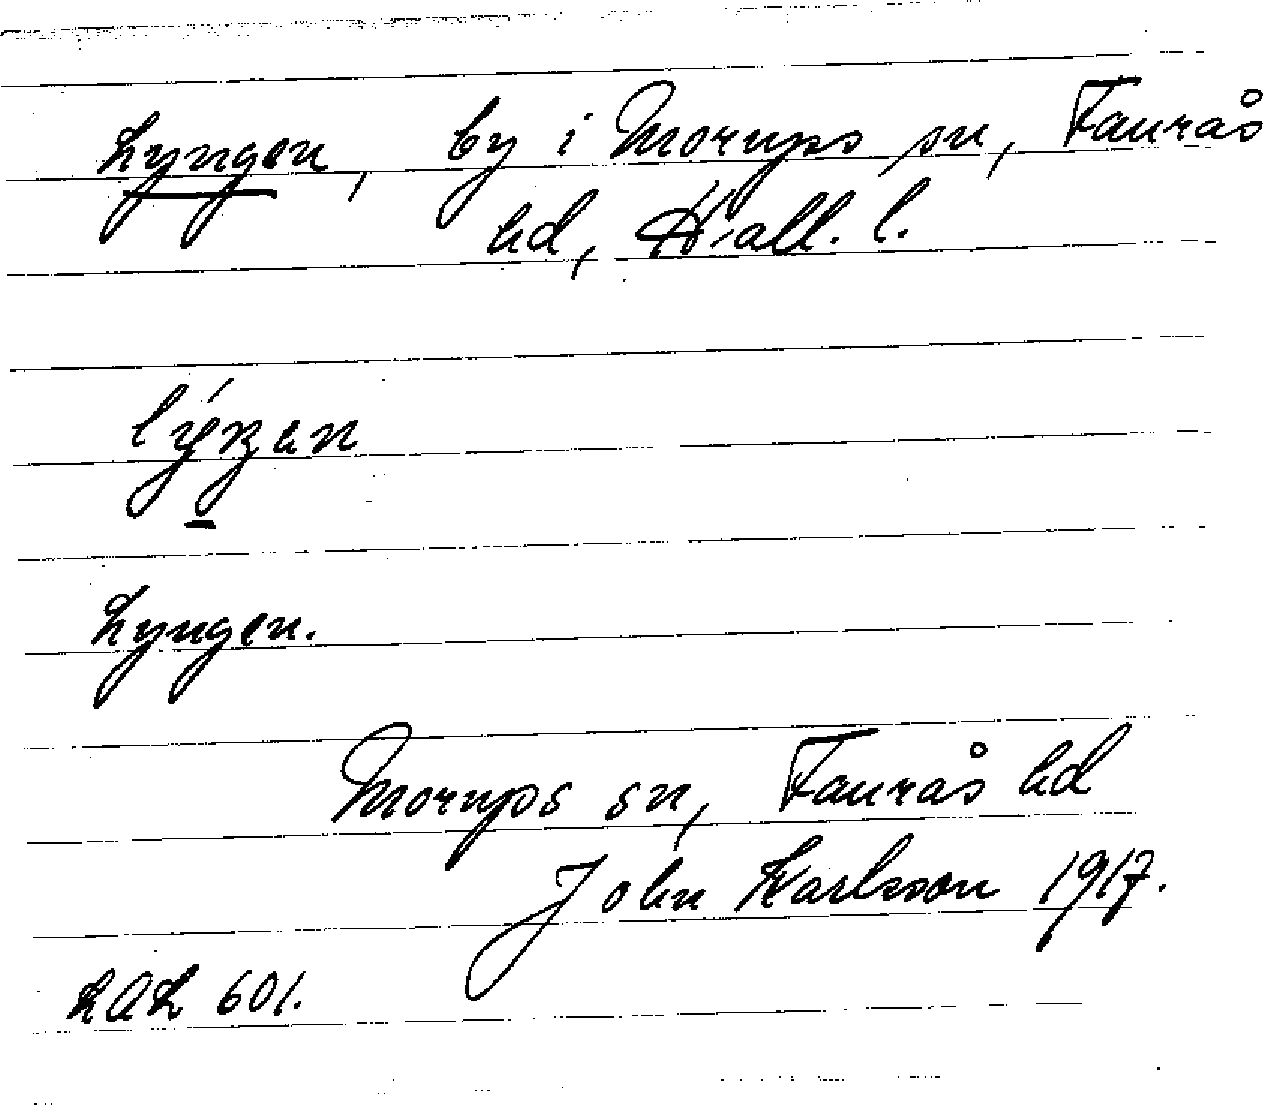 Lyngen, by i Morups sn, Faurås
hd, Hall. l.
Lyngen.
Morups sn, Faurås hd
John Karlsson 1917.
LAL 601.